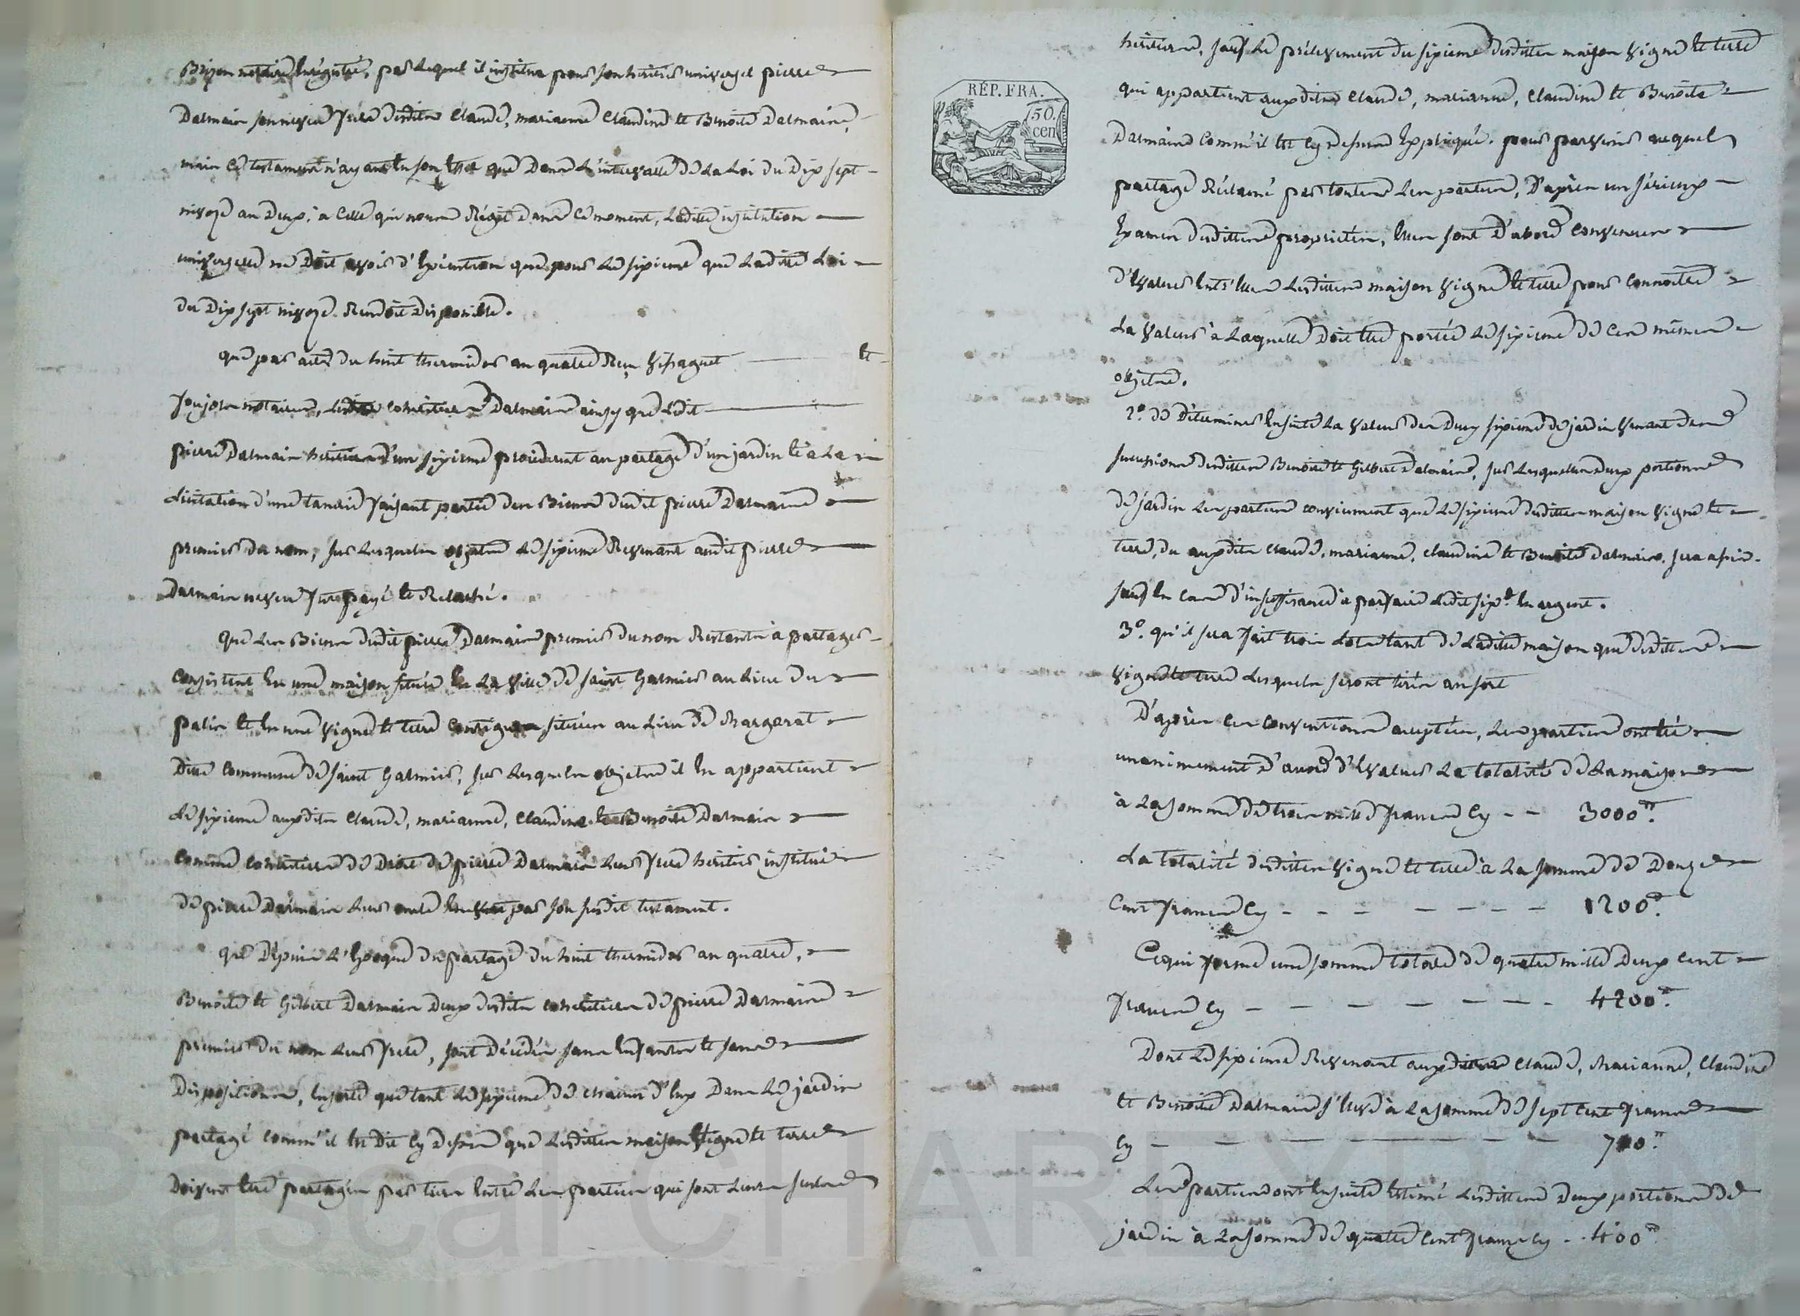 notaire enregistré, par lequel il institue pour son heritier universel pierre
Dalmais son neveu frere desdits Claude, marianne Claudine et Benoite Dalmais,
mais ce testament n'ayant eu son que dans l'intervalle de la Loi du Dix sept
nivose an deux, a celle qui nous Régit dans ce moment, Ladite institution
universelle ne Doit avoir d'Execution que pour le sixieme que Ladite Loi
du Dix sept nivose Rendoit Disponible.
que par acte du huit thermidor an quatre Reçu et
notaires, Lesdits coheritiers Dalmais ainsy que Ledit
pierre Dalmais heritier d'un sixieme procederent au partage d'un jardin et a La
licitation d'une tannerie faisant partie des Biens dudit pierre Dalmais
premier du nom, sur Lesquels objets Le sixieme Revenant audit pierre
Dalmais neveu fut payé et Relaché.
Que Les Biens dudit pierre Dalmais premier du nom Restants a partager
consistent En une maison située En La ville de saint Galmier au Lieu du
patin et En une vigne et terre contigues situées au Lieu de Margerat
Dite commune de saint Galmier, sur Lesquels objets il En appartient
Le sixieme auxdits Claude, marianne, Claudine et Benoite Dalmais
comme coheritiers de Droit de pierre Dalmais Leur frere heritier institué
de pierre Dalmais Leur oncle par son susdit testament.
que Depuis L'Epoque du partage du huit thermidor an quatre,
Benoite et Gilbert Dalmais Deux desdits coheritiers de pierre Dalmais
premier du nom Leur frere, sont Décédés sans Enfants et sans
Dispositions, Ensorte que tant Le sixieme de chacun d'Eux Dans Le jardin
partagé comm'il Est Dit Cy dessus que Lesdittes maison Vigne et terre
Doivent Etre partagés par tiers Entre Les parties qui sont Leurs seules
RÉP. FRA.
50.
cen
heritieres, sauf Le prélevement du sixieme desdittes maison Vigne et terre
qui appartient auxdits Claude, marianne, Claudine et Benoite
Dalmais Comm'il Est Cy dessus Expliqué. pour parvenir auquel
partage Réclamé par toutes Les parties, D'après un sérieux
Examen desdittes proprietés, Elles sont D'abord Convenues
d'Evaluer Entr'Elles Lesdittes maison Vigne et terre pour Connoitre
La valeur à Laquelle Doit Etre portée Le sixieme de Ces mêmes
objets.
2º. de Déterminer Ensuite La valeur des Deux sixiemes de jardin venant des
successions desdits Benoite et Gilbert Dalmais, sur Lesquelles Deux portions
de jardin Les parties conviennent que Le sixieme desdittes maison Vigne et
terre, du auxdits Claude, marianne, Claudine et Benoite Dalmais sera assis.
sauf En Cas d'insuffisance à parfaire Ledit six.e En argent.
3º. qu'il sera fait trois Lots tant de Laditte maison que desdittes
vigne et terre Lesquels seront tirés au sort
D'après Ces conventions acceptées, Les parties ont été
unanimement d'avis d'Evaluer La totalité de La maison
à La somme de trois mille francs Cy - - 3000.
La totalité desdittes vigne et terre à La somme de Douze
Cent francs Cy - - - - - - - - 1200.
Ce qui forme une somme totale de quatre mille Deux Cent
francs Cy - - - - - - - - 4200.
Dont Le sixieme Revenant auxdits Claude, Marianne, Claudine
et Benoite Dalmais s'Eleve à La somme de sept Cent francs
Cy - - - - - - - - 700.
Les parties ont Ensuite Estimé Lesdittes Deux portions de
jardin à La somme de quatre Cent francs Cy - - 400.
Pascal CHARLYRON